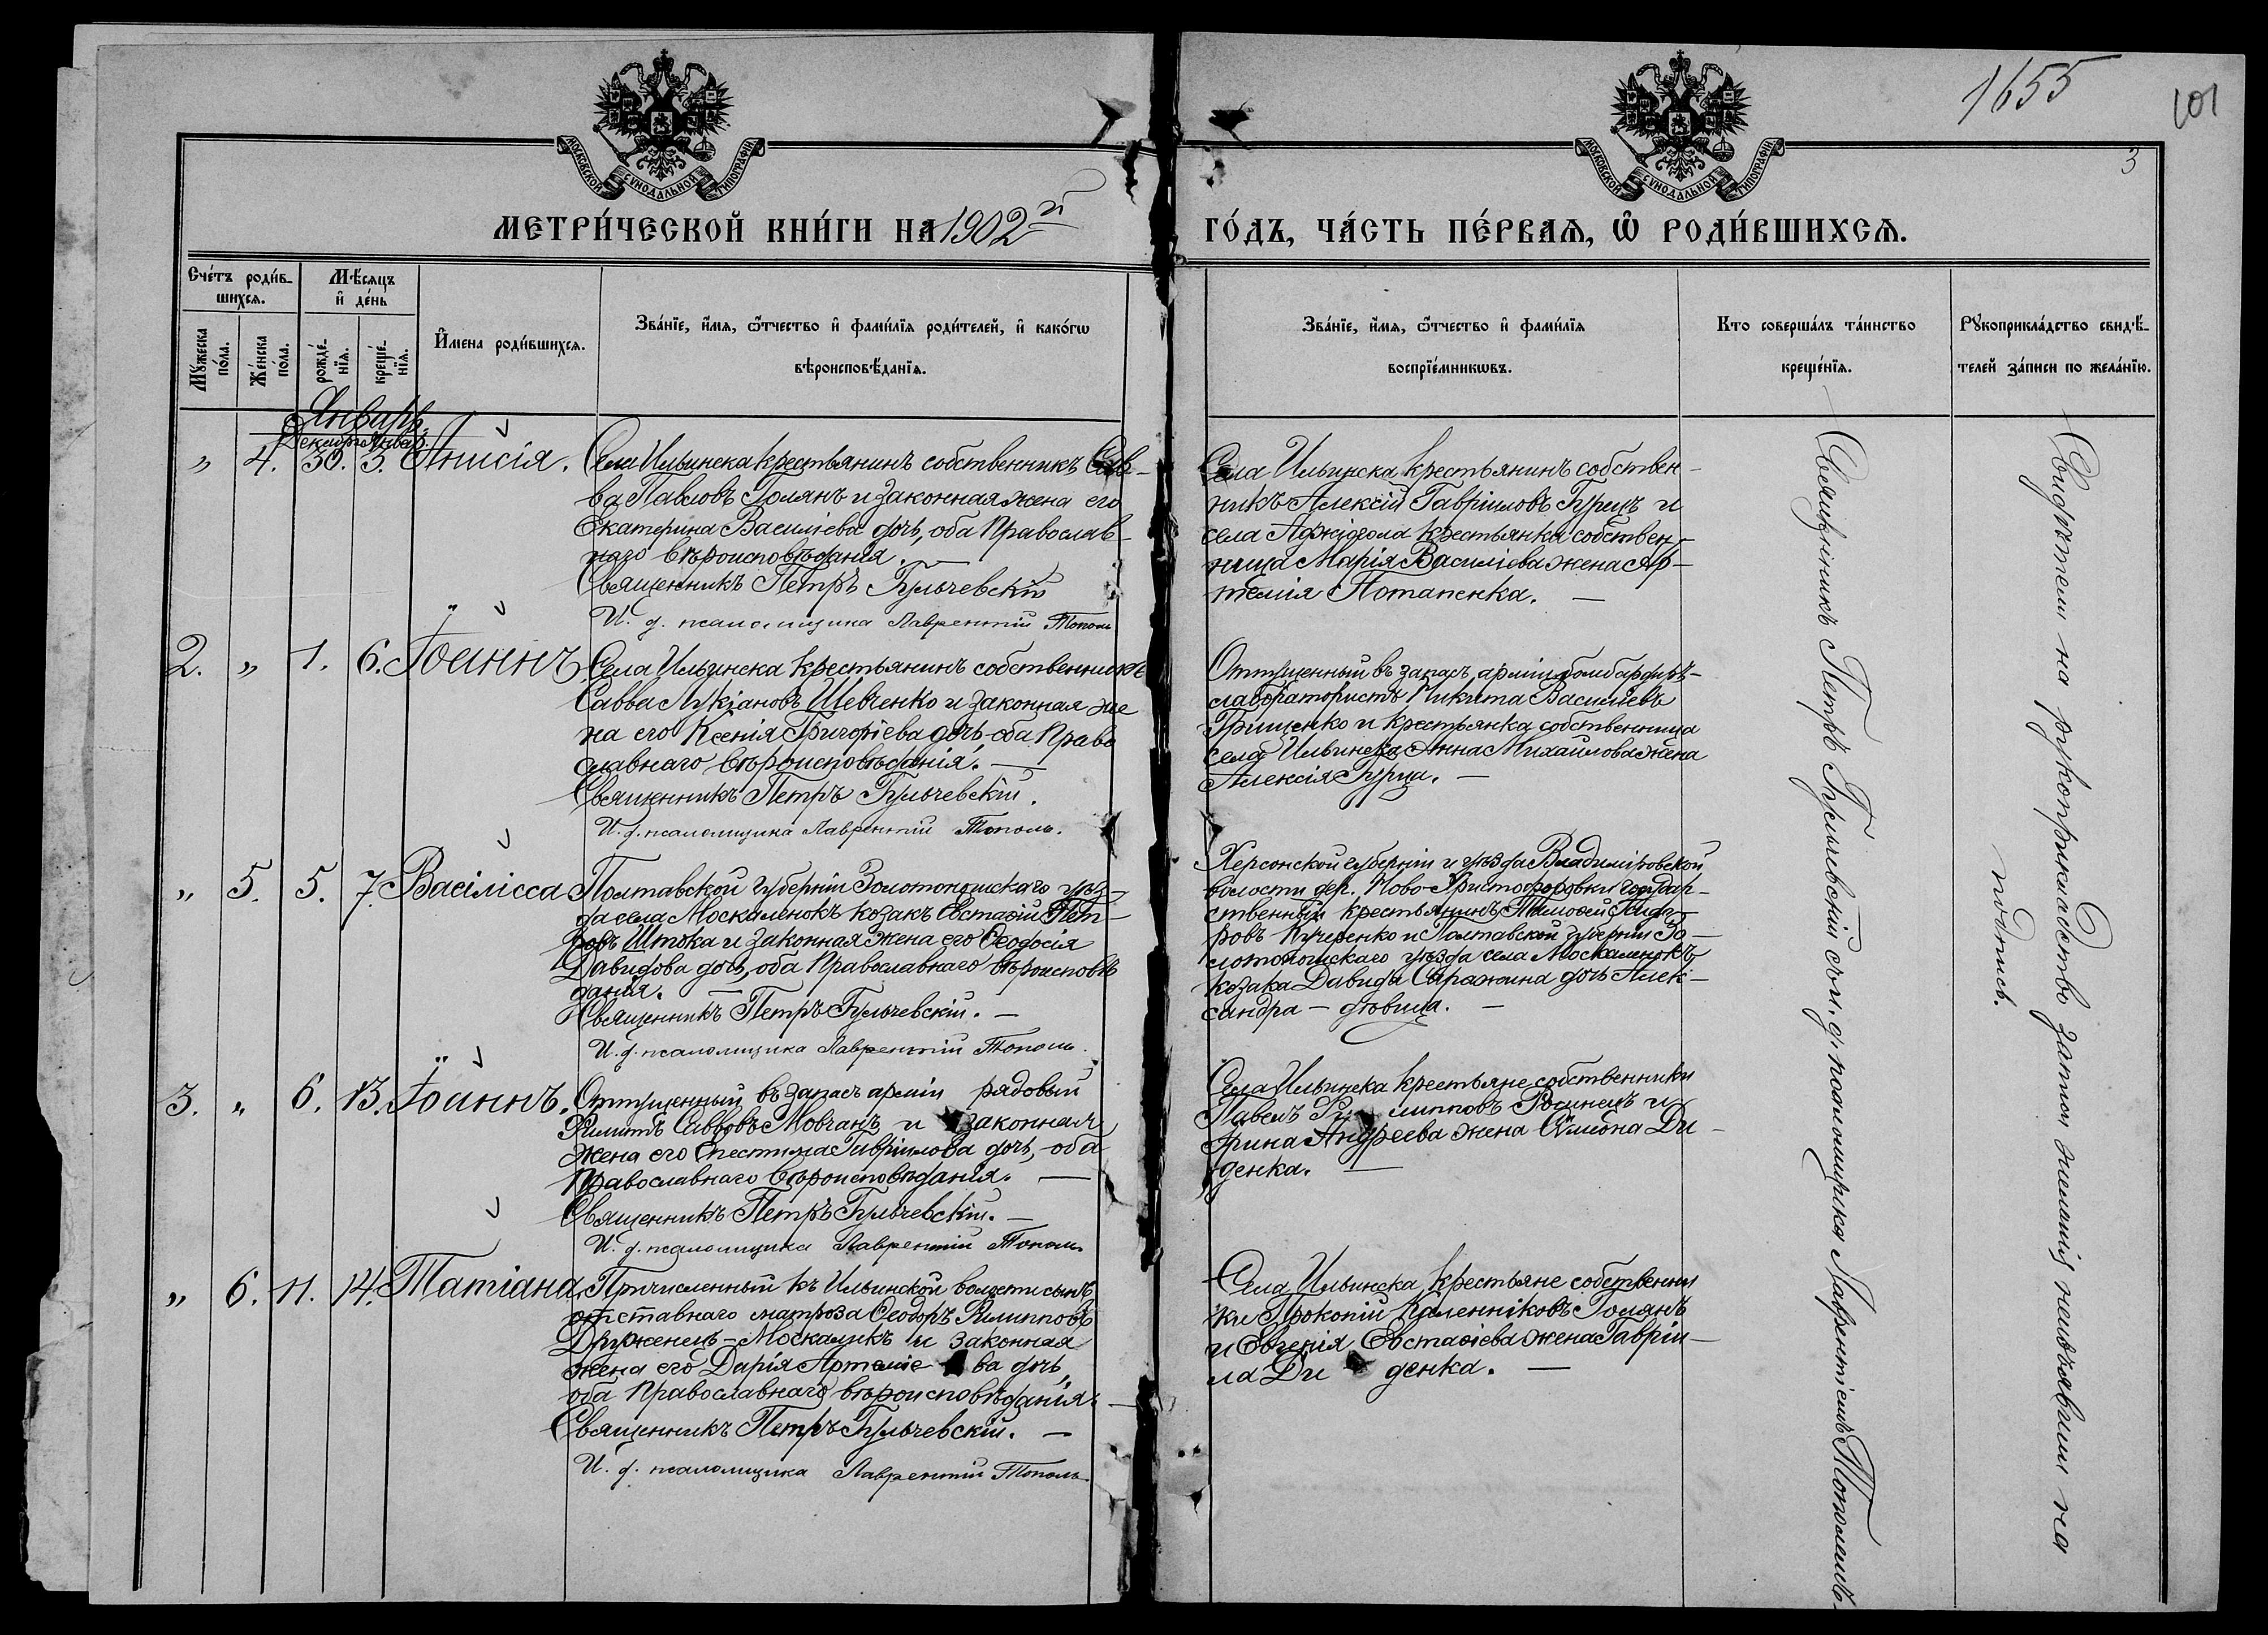 1655
101
3
МОСКОВСКОЙ СУНОДАЛЬНОЙ ТИПОГРАФІИ
МОСКОВСКОЙ СУНОДАЛЬНОЙ ТИПОГРАФІИ
МЕТРИ́ЧЕСКОЙ КНИ́ГИ НА 1902й ГО́ДЪ, ЧА́СТЬ ПЕ́РВАѦ, Ѽ РОДИ́ВШИХСѦ.
Сче́тъ роди́в-
шихсѧ.
Мꙋ́жеска по́ла.
Же́нска по́ла.
Мѣ́сѧцъ
и҆ де́нь
рожде́-
нїѧ.
креще́-
нїѧ.
И҆мена роди́вшихсѧ.
Зва́нїе, и҆́мѧ, ѻ҆́тчество и҆ фами́лїѧ роди́телей, и҆ како́гѡ
вѣроисповѣ́данїѧ.
Зва́нїе, и҆́мѧ, ѻ҆́тчество и҆ фами́лїѧ
воспрїе́мникѡвъ.
Кто соверша́лъ та́инство
креще́нїѧ.
Рꙋкоприкла́дство свидѣ́-
телей за́писи по жела́нїю.
Январь.
Декабр. Январ.
„ 4. 30. 3. Анисія.
Села Ильинска крестьянинъ собственникъ Сав-
ва Павловъ Голянъ и законная жена его
Екатерина Василіева дочь, оба Православ-
наго вѣроисповѣданія. —
Священникъ Петръ Бульчевскій
И. д. псаломщика Лаврентій Тополь
Села Ильинска крестьянинъ собствен-
никъ Алексій Гавріиловъ Гурецъ и
села Аджігола крестьянка собствен-
ница Марія Василіева жена Ар-
темія Потапенка. —
2. „ 1. 6. Іоаннъ.
Села Ильинска крестьянинъ собственникъ
Савва Лукіановъ Шевченко и законная же
на его Ксенія Григоріева дочь, оба Право
славнаго вѣроисповѣданія. —
Священникъ Петръ Бульчевскій.
И. д. псаломщика Лаврентій Тополь.
Отпущенный въ запасъ арміи бомбардиръ-
лаборатористъ Никита Василіевъ
Грищенко и крестьянка собственница
села Ильинска Анна Михайлова жена
Алексія Гурца. —
„ 5. 5. 7. Васілісса
Полтавской губерніи Золотоношскаго уѣз-
да села Москаленокъ козакъ Евстафій Пет-
ровъ Штока и законная жена его Ѳеодосія
Давидова дочь, оба Православнаго вѣроисповѣ
данія. —
Священникъ Петръ Бульчевскій. —
И. д. псаломщика Лаврентій Тополь.
Херсонской губерніи и уѣзда Владиміровской
волости дер. Ново-Христофоровки государ-
ственный крестьянинъ Тимоѳей
ровъ Кучеренко и Полтавской губерніи Зо-
лотоношскаго уѣзда села Москаленокъ
козака Давида дочь Алек-
сандра — дѣвица. —
3. „ 6. 13. Іоаннъ.
Отпущенный въ запасъ арміи рядовый
Филиппъ Саввовъ Мовчанъ и законная
жена его Гавріилова дочь, оба
Православнаго вѣроисповѣданія. —
Священникъ Петръ Бульчевскій. —
И. д. псаломщика Лаврентій Тополь
Села Ильинска крестьяне собственники
Павелъ Филипповъ и
Ирина Андреева жена Симеона Ди-
денка. —
„ 6. 11. 14. Татіана.
Причисленный къ Ильинской волости сынъ
отставнаго матроза Ѳеодоръ Филипповъ
Друженецъ-Москалукъ и законная
жена его Дарія Артеміева дочь,
оба Православнаго вѣроисповѣданія. —
Священникъ Петръ Бульчевскій. —
И. д. псаломщика Лаврентій Тополь.
Села Ильинска крестьяне собственни
ки Прокопій Каленниковъ Голянъ
и Евгенія Евстафіева жена Гавріи-
ла Диденка. —
Священникъ Петръ Бульчевскій съ и. д. псаломщика Лаврентіемъ Тополемъ.
Свидѣтели на рукоприкладство записи желанія неизъявили на
подпись.